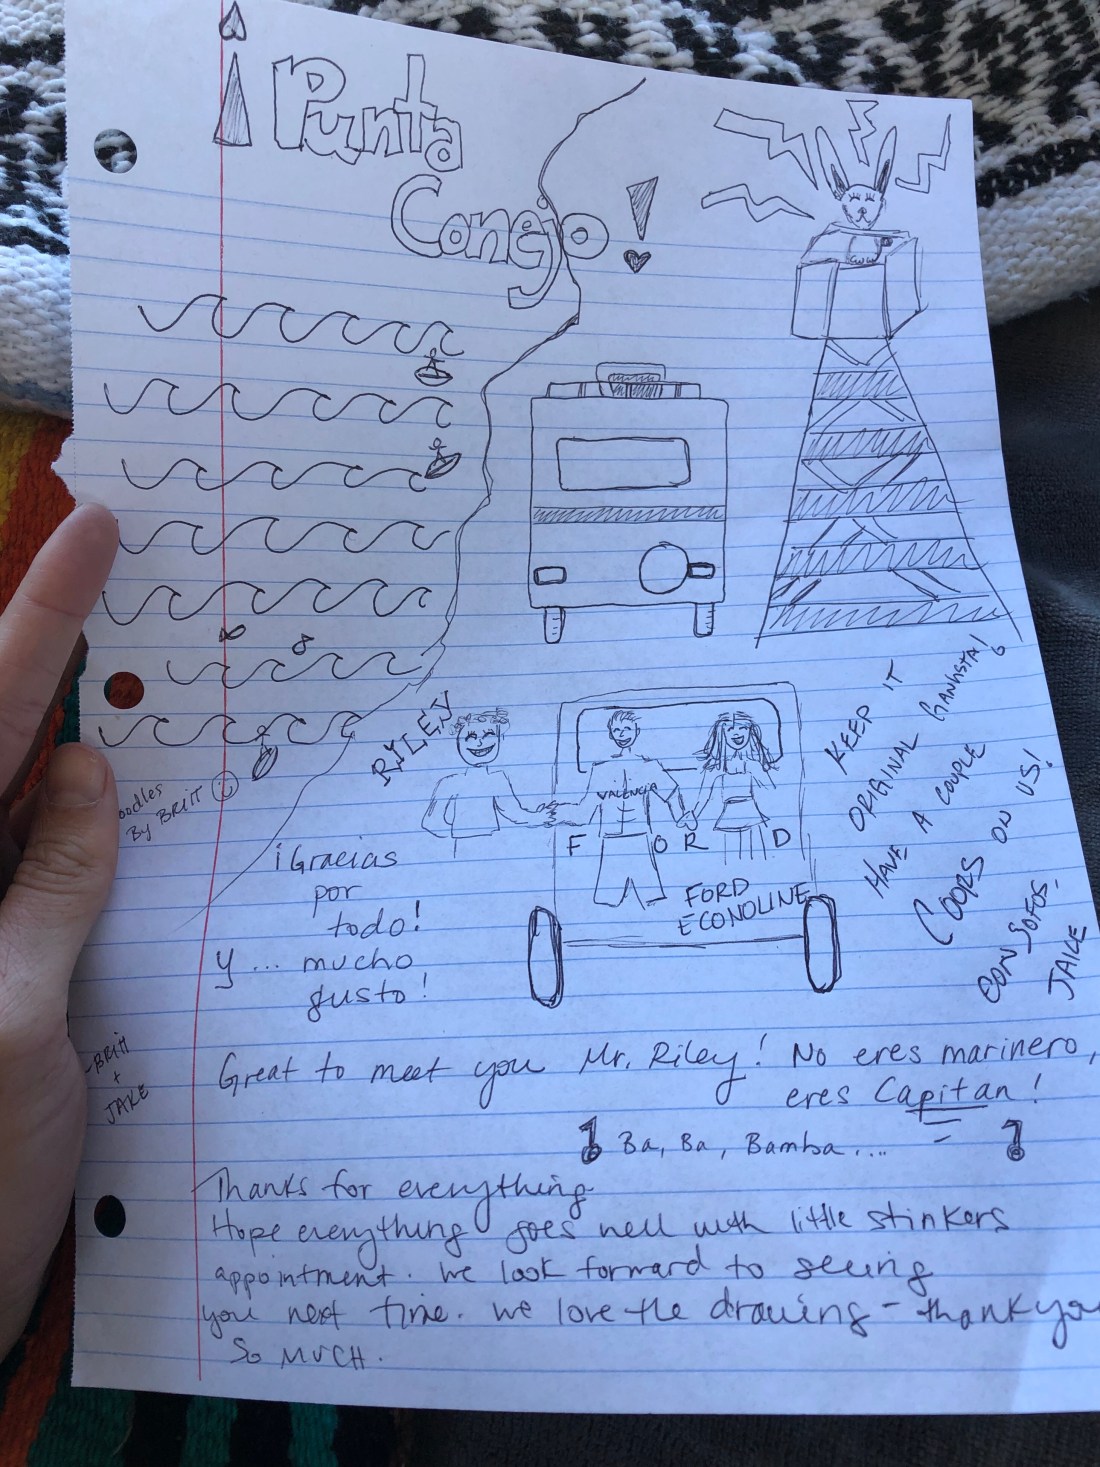 ¡Punta
Conejo!
RILEY
Doodles
By BRITT
VALENCIA
F O R D
FORD
ECONOLINE
¡Gracias
por
todo!
y... mucho
gusto!
KEEP IT
ORIGINAL GANGSTA!
HAVE A COUPLE
COORS ON US!
CON
JAKE
-BRITT
+
JAKE
Great to meet you Mr. Riley! No eres marinero,
eres Capitan!
Ba, Ba, Bamba....
Thanks for everything
Hope everything goes well with little stinkers
appointment. We look forward to seeing
you next time. We love the drawing - thank you
So MUCH.